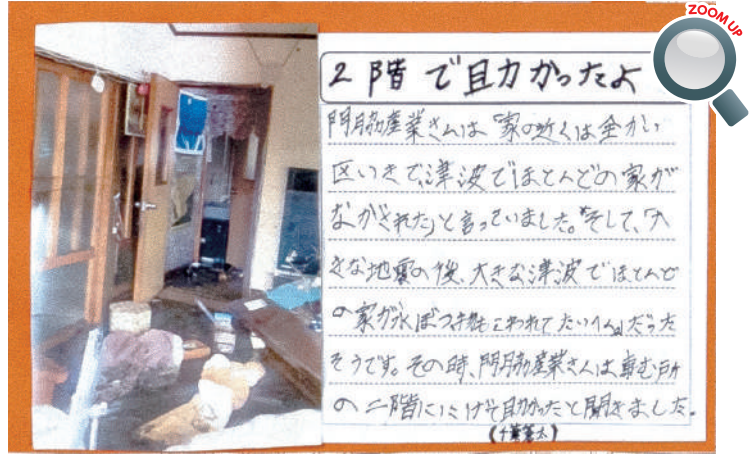 ZOOM UP
2階で助かったよ
門脇産業さんは「家の近くは全かい
区いきで、津波でほとんどの家が
ながされた」と言っていました。そして、「大
きな地震の後、大きな津波でほとんど
の家が水ぼつ こわれてたいへん」だった
そうです。その時、門脇産業さんは事む所
の二階ににげて助かったと聞きました。
(千葉蒼太)